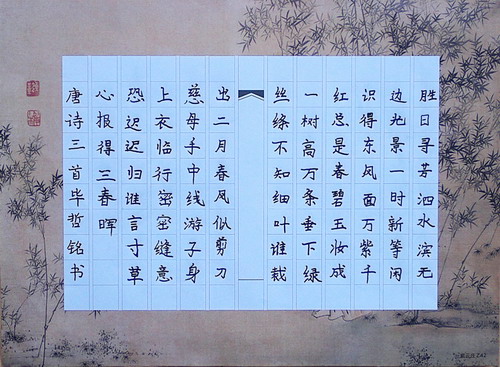 胜日寻芳泗水滨无
边光景一时新等闲
识得东风面万紫千
红总是春碧玉妆成
一树高万条垂下绿
丝绦不知细叶谁裁
出二月春风似剪刀
慈母手中线游子身
上衣临行密密缝意
恐迟迟归谁言寸草
心报得三春晖
唐诗三首毕哲铭书